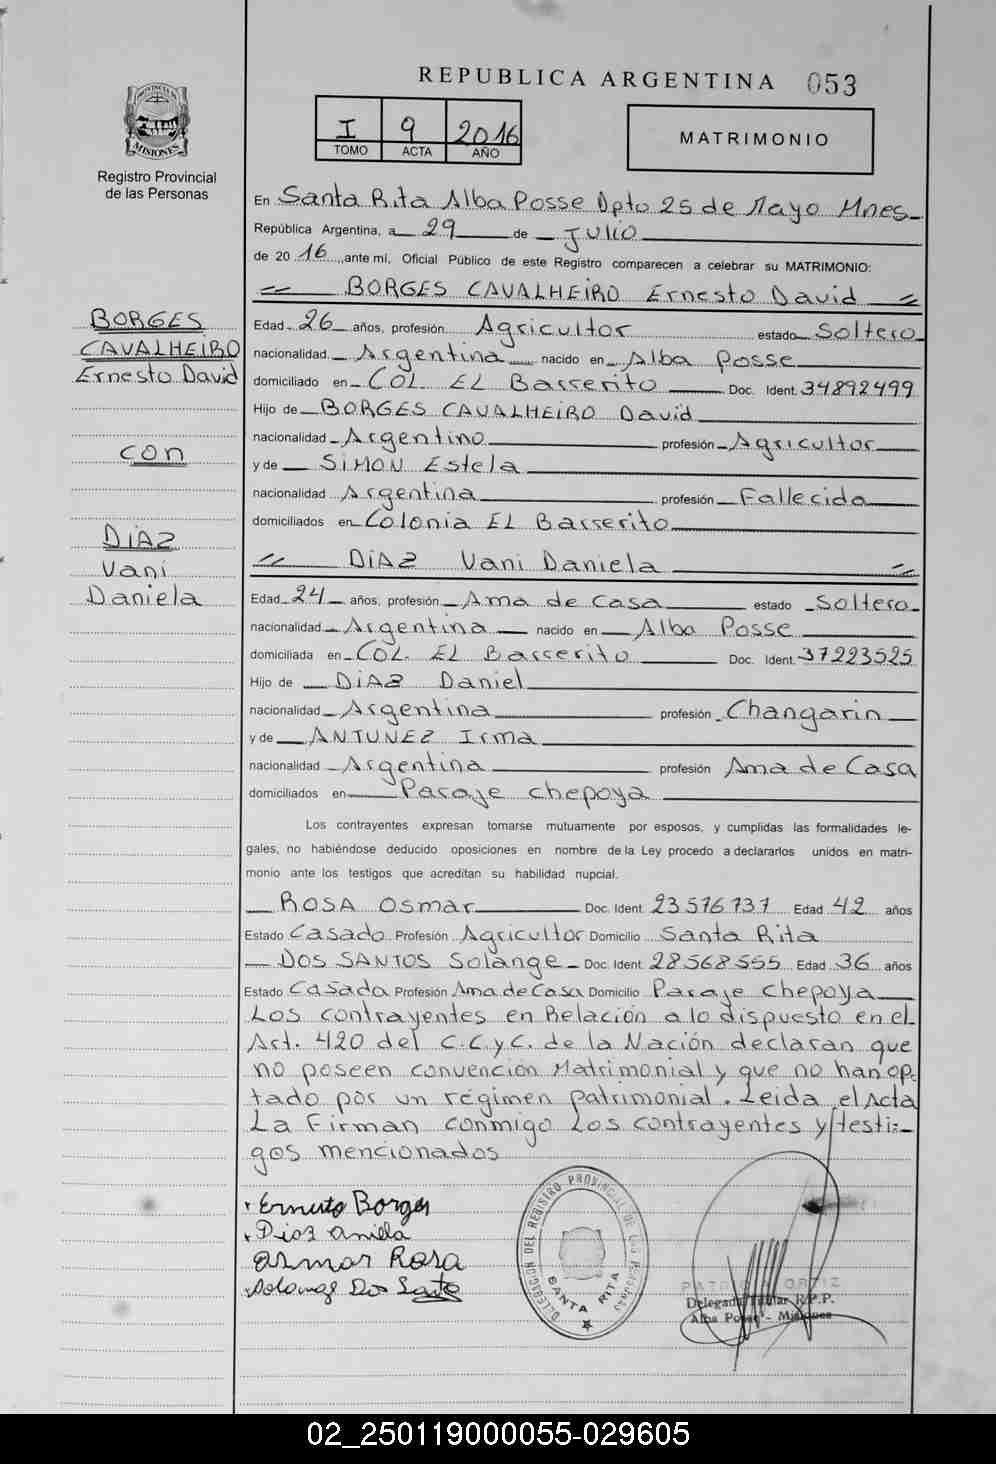 REPUBLICA ARGENTINA 053
I 9 2016
TOMO ACTA AÑO
MATRIMONIO
PROVINCIA DE
MISIONES
Registro Provincial
de las Personas
En Santa Rita Alba Posse Dpto 25 de Mayo Mnes
República Argentina, a 29 de Julio
de 2016, ante mí, Oficial Público de este Registro comparecen a celebrar su MATRIMONIO:
BORGES CAVALHEIRO Ernesto David
BORGES
CAVALHEIRO
Ernesto David
con
DIAZ
Vani
Daniela
Edad 26 años, profesión Agricultor estado Soltero
nacionalidad Argentina nacido en Alba Posse
domiciliado en COL. EL Barrerito Doc. Ident. 34892499
Hijo de BORGES CAVALHEIRO David
nacionalidad Argentino profesión Agricultor
y de SIMON Estela
nacionalidad Argentina profesión Fallecida
domiciliados en Colonia EL Barrerito
DIAZ Vani Daniela
Edad 24 años, profesión Ama de Casa estado Soltera
nacionalidad Argentina nacido en Alba Posse
domiciliada en COL. EL Barrerito Doc. Ident. 37223525
Hijo de DIAZ Daniel
nacionalidad Argentina profesión Changarin
y de ANTUNEZ Irma
nacionalidad Argentina profesión Ama de Casa
domiciliados en Paraje chepoya
Los contrayentes expresan tomarse mutuamente por esposos, y cumplidas las formalidades le-
gales, no habiéndose deducido oposiciones en nombre de la Ley procedo a declararlos unidos en matri-
monio ante los testigos que acreditan su habilidad nupcial.
ROSA Osmar Doc. Ident 23576737 Edad 42 años
Estado Casado Profesión Agricultor Domicilio Santa Rita
DOS SANTOS Solange Doc. Ident 28568555 Edad 36 años
Estado Casada Profesión Ama de Casa Domicilio Paraje chepoya
Los contrayentes en Relación a lo dispuesto en el
Art. 420 del C.C.y C. de la Nación declaran que
no poseen convención Matrimonial y que no han op-
tado por un régimen patrimonial. Leida el Acta
La Firman conmigo Los contrayentes y testi-
gos mencionados
Ernesto Borges
Diaz
Rosa
DELEGACION DEL REGISTRO PROVINCIAL DE LAS PERSONAS
SANTA RITA
ORTIZ
Delegada Titular R.P.P.
Alba Posse - Misiones
02_250119000055-029605